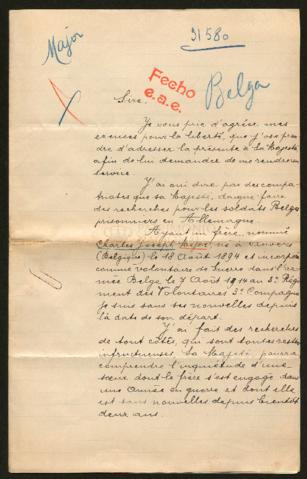 Major
31580
Fecho
e.a.e.
Belga
Sire.
Je vous prie d'agréer mes
excuses pour la liberté, que j'ose pren
dre d'adresser la présente à Sa Majesté
afin de lui demander de me rendre un
service.
J'ai ouï dire par des compa
triotes que sa Majesté, daigne faire
des recherches pour les soldats Belges
prisonniers en Allemagne.
Ayant un frère, nommé
Charles Joseph Major né à
(Belgique) le 18 Août 1894 et incorporé
comme volontaire de Guerre dans l'ar
mée Belge le 7 Août 1914 au 3e Régi
ment des Volontaires 5e Compagnie
je suis sans ses nouvelles depuis
la date de son départ.
J'ai fait des recherches
de tout côtés, qui sont toutes restées
infructueuses. Sa Majesté, pourra
comprendre l'inquiétude d'une
sœur dont le frère s'est engagé dans
une Armée en guerre et dont elle
est sans nouvelles depuis bientôt
deux ans.